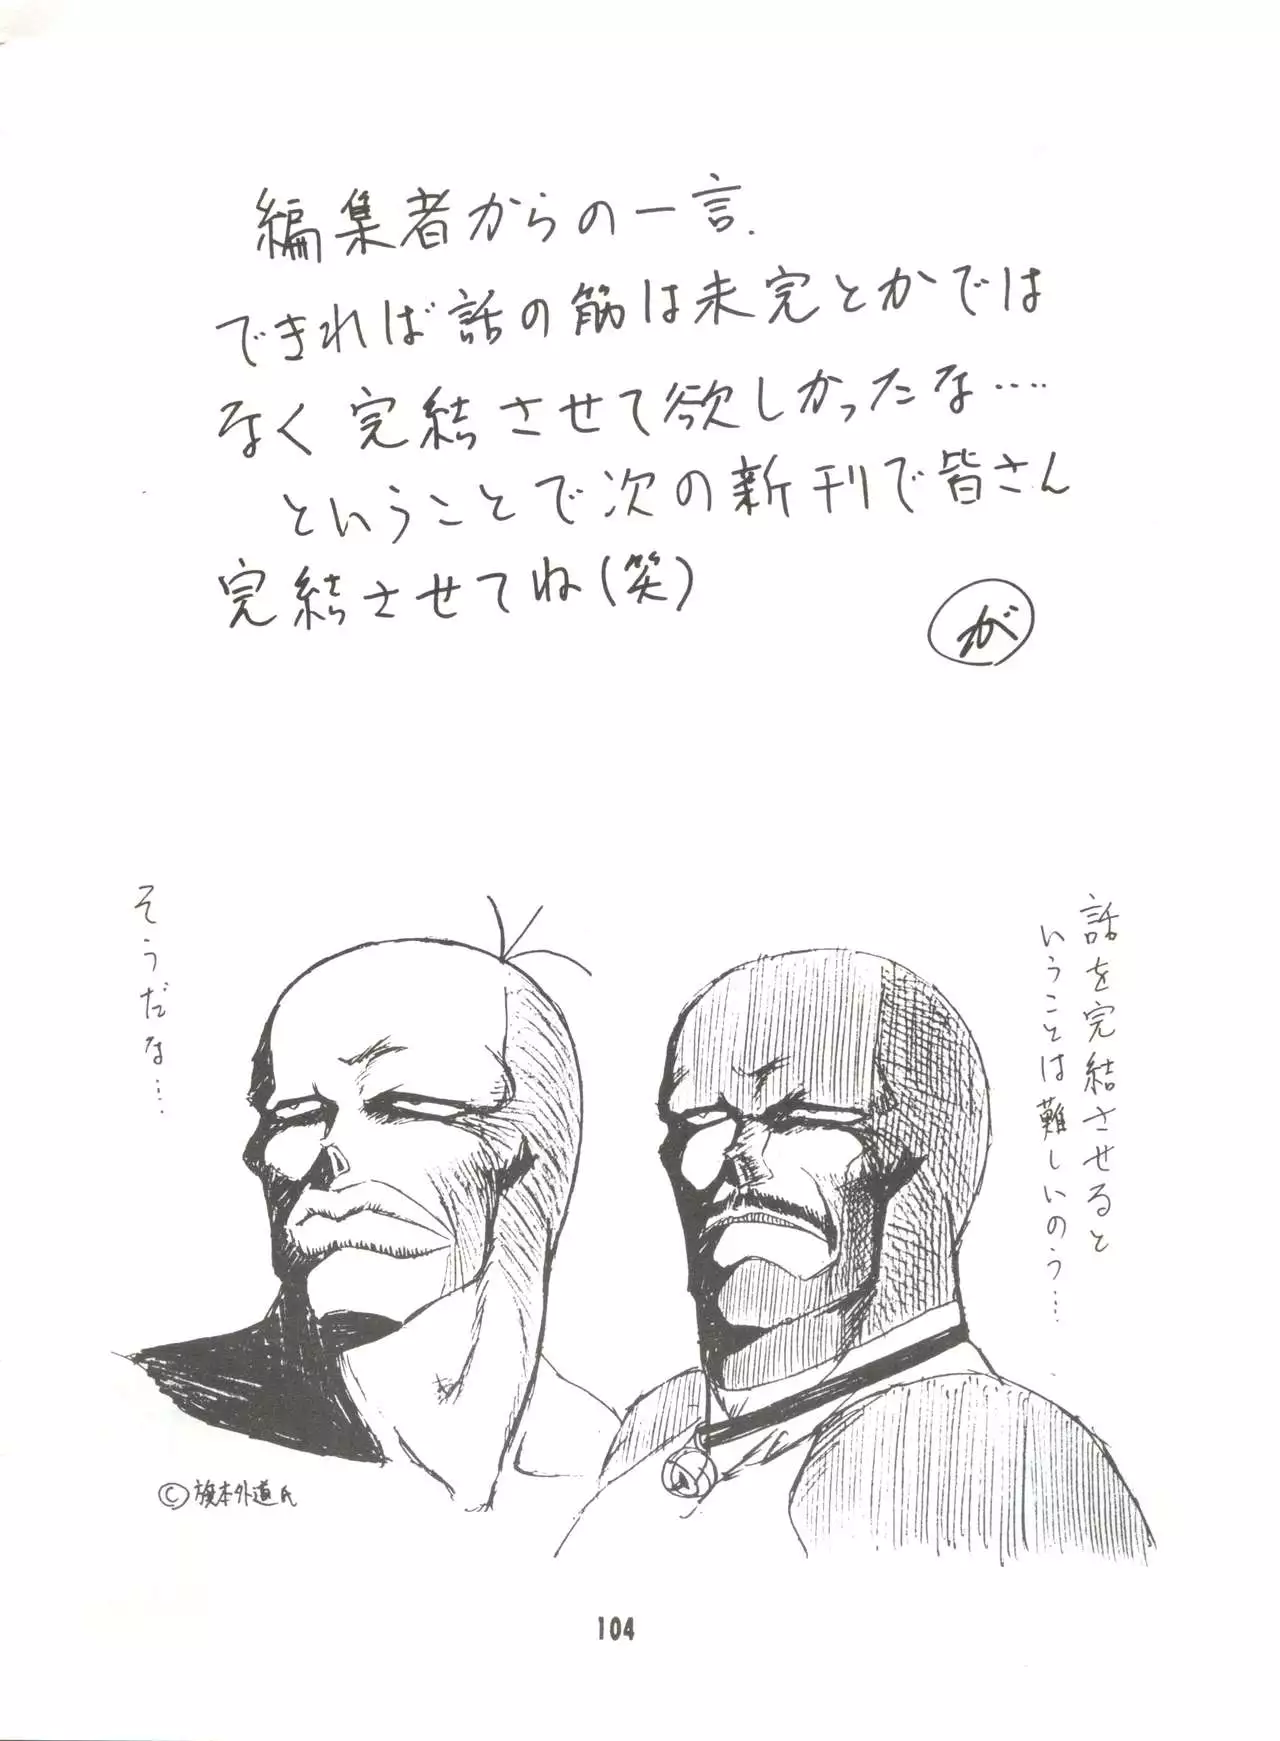 編集者からの一言.
できれば話の筋は未完とかでは
なく完結させて欲しかったな‥‥
ということで次の新刊で皆さん
完結させてね(笑)
が
話を完結させると
いうことは難しいのう‥‥
そうだな‥‥
©旗本外道氏
104